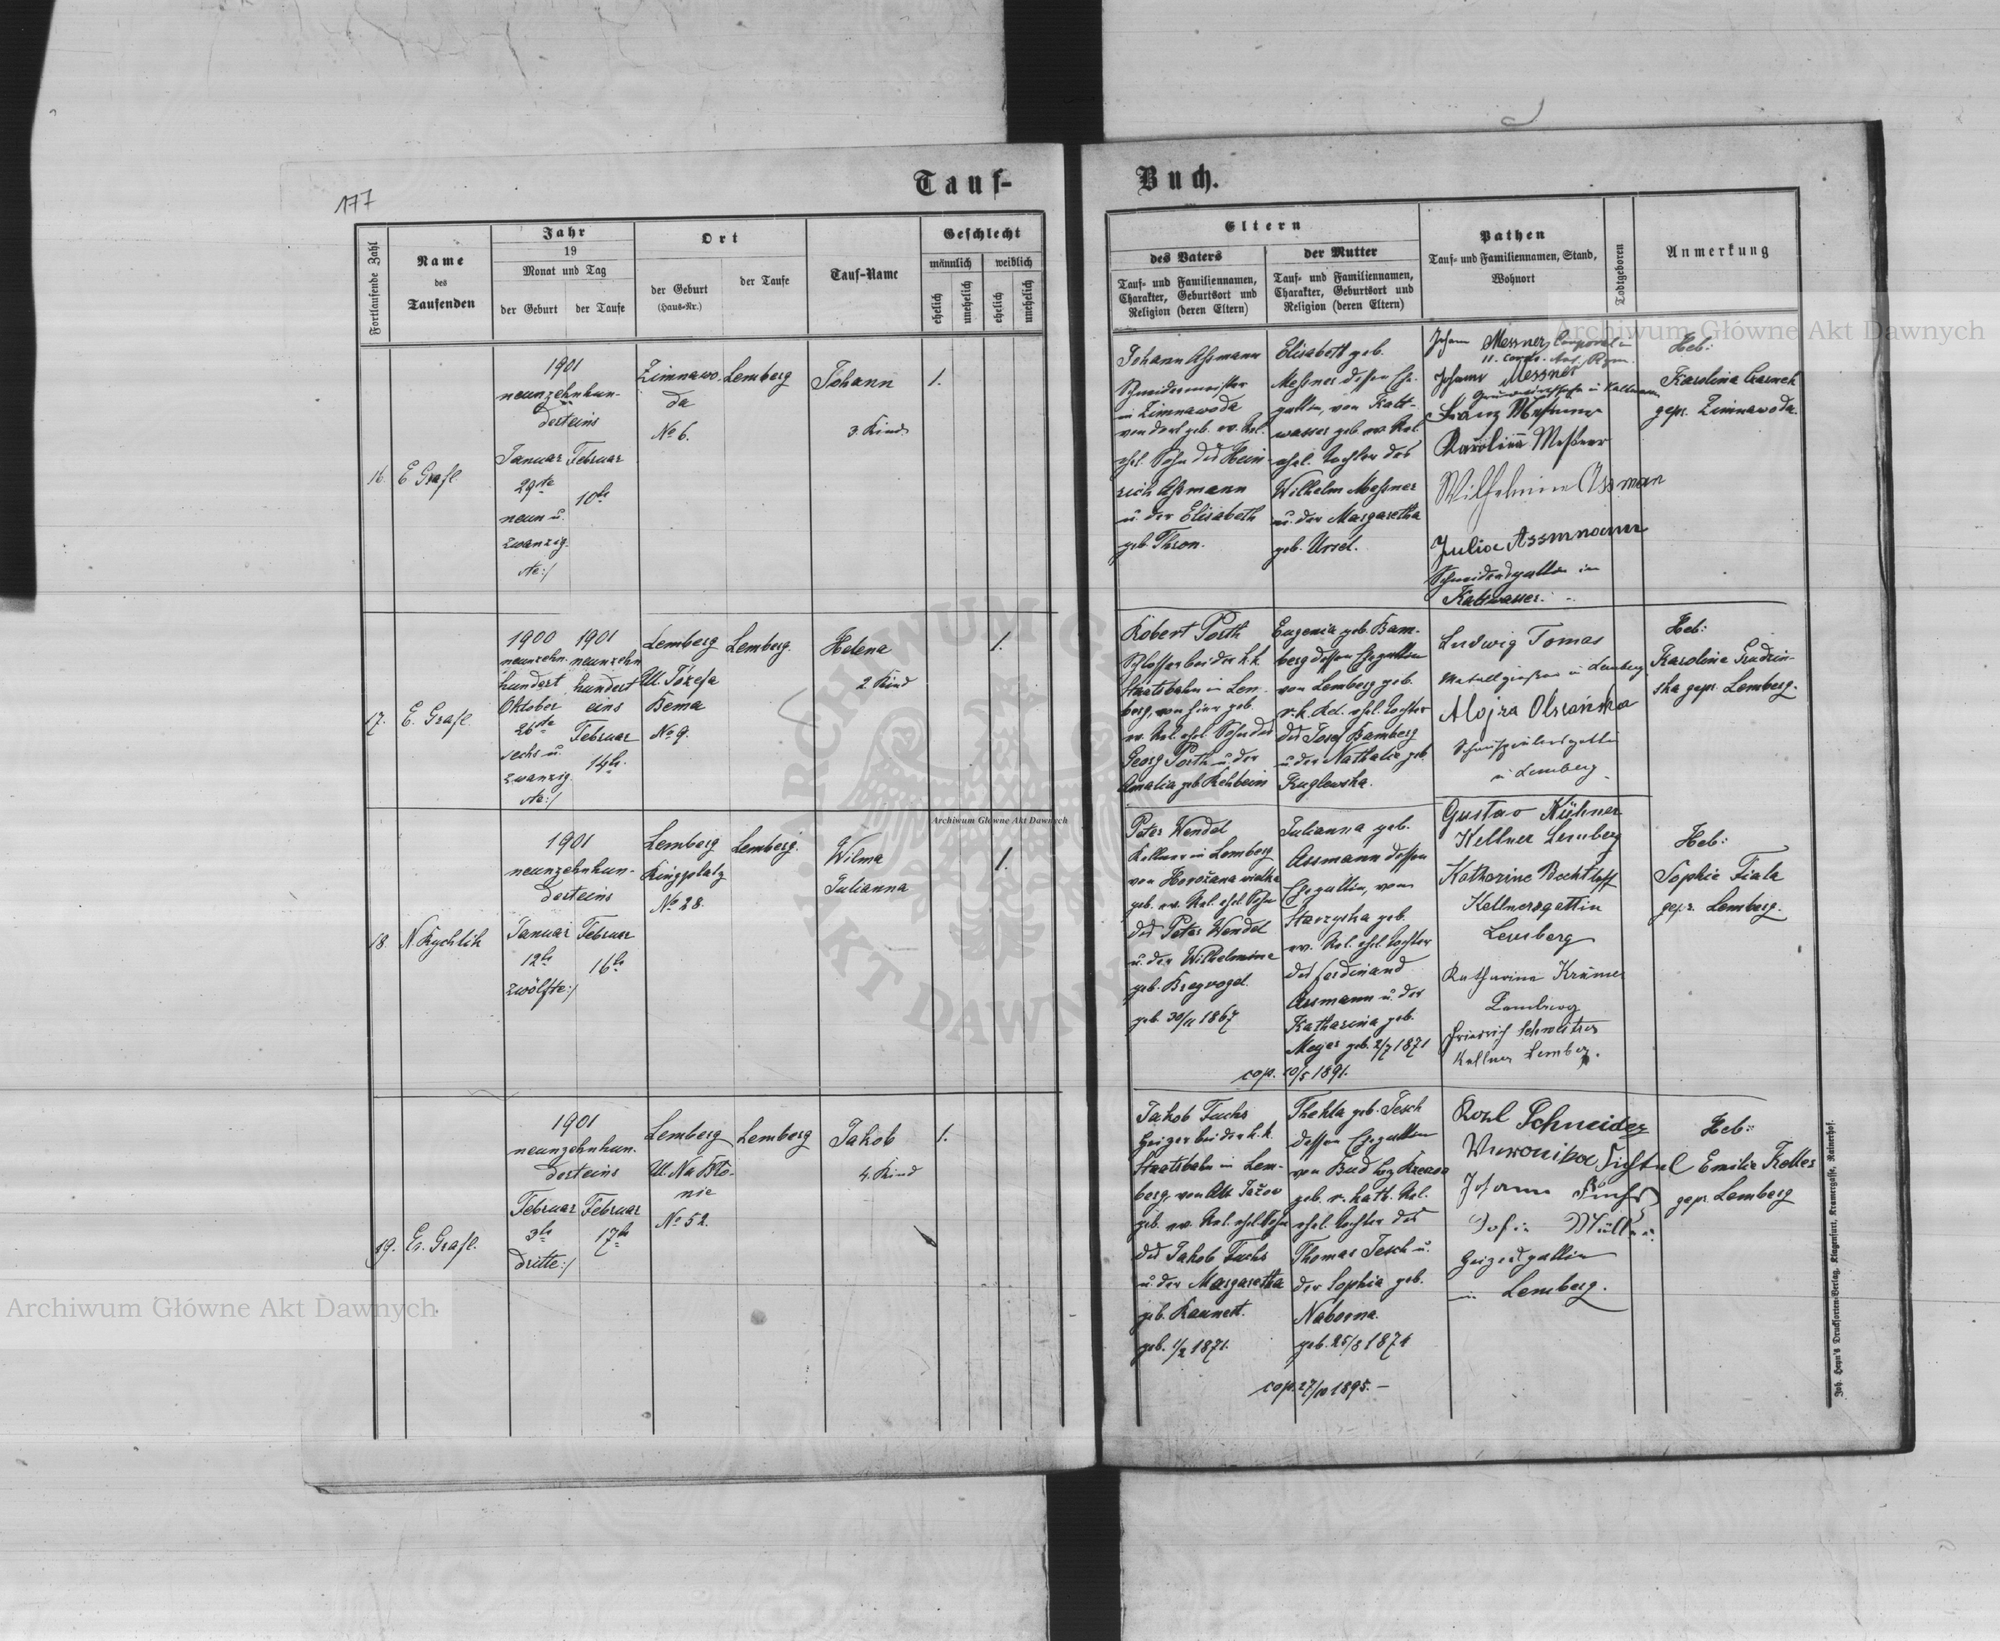 177
Tauf-
Buch.
Fortlaufende Zahl
Name
des
Taufenden
Jahr
19
Monat und Tag
der Geburt
der Taufe
Ort
der Geburt
(Haus-Nr.)
der Taufe
Tauf-Name
Geschlecht
männlich
weiblich
ehelich
unehelich
ehelich
unehelich
Eltern
des Vaters
Tauf- und Familiennamen,
Charakter, Geburtsort und
Religion (deren Eltern)
der Mutter
Tauf- und Familiennamen,
Charakter, Geburtsort und
Religion (deren Eltern)
Pathen
Tauf- und Familiennamen, Stand,
Wohnort
Todtgeboren
Anmerkung
16.
E Grafl
1901
neunzehnhun-
derteins
Januar
29te
neun u.
zwanzig-
ste:/
Februar
10te
Zimnawo-
da
No 6.
Lemberg
Johann
3. Kind
1.
Johann Aßmann
Schneidermeister
in Zimnawoda
von dort geb. ev. Rel.
ehel. Sohn des Hein-
rich Aßmann
u. der Elisabeth
geb. Thron.
Elisabeth geb.
Meßner dessen Ehe-
gattin, von Kalt-
wasser geb. ev. Rel.
ehel. Tochter des
Wilhelm Meßner
u. der Margaretha
geb. Ursel.
Johann Messner, Corporal in
Johann Messner
Franz Meßner
Karolina Meßner
Wilhelmine Assman
Julia Assmann
Schneidersgattin in
Kaltwasser.
Heb:
Karolina Czarnek
gepr. Zimnawoda.
17.
E. Grafl.
1900
neunzehn-
hundert
Oktober
26te
sechs u.
zwanzig-
ste:/
1901
neunzehn
hundert
eins
Februar
14te
Lemberg
Ul. Józefa
Bema
No 9.
Lemberg.
Helena
2. Kind
1.
Robert Porth
Schlosser bei der k.k.
Staatsbahn in Lem-
berg, von hier geb.
ev. Rel. ehel. Sohn des
Georg Porth u. der
Amalia geb. Rehbein
Eugenia geb. Bam-
berg dessen Ehegattin
von Lemberg geb.
r. k. Rel. ehel. Tochter
des Josef Bamberg
u. der Nathalie geb.
Kuglewska.
Ludwig Tomas
Metallgießer in Lemberg
Alojza Olszańska
in Lemberg
Heb:
Karolina Grudzin-
ska gepr. Lemberg.
18.
N. Rychlik
1901
neunzehnhun-
derteins
Januar
12te
zwölfte:/
Februar
16te
Lemberg
Ringplatz
No 28.
Lemberg.
Wilma
Julianna
1.
Peter Wendel
Kellner in Lemberg
von Horożana wielka
geb. ev. Rel. ehel. Sohn
des Peter Wendel
u. der Wilhelmine
geb. Bregvogel.
geb. 30/11 1867
Julianna geb.
Assmann dessen
Ehegattin, von
geb.
ev. Rel. ehel. Tochter
des Ferdinand
Assmann u. der
Katharina geb.
Meyer geb. 2/7 1871
cop. 10/5 1891.
Gustav Kühner
Kellner Lemberg
Katharine Bechtloff
Kellnersgattin
Lemberg
Katharina Krämer
Lemberg
Friedrich Schweitzer
Kellner Lemberg.
Heb:
Sophie Fiala
gepr. Lemberg.
19.
E. Grafl.
1901
neunzehnhun-
derteins
Februar
3te
dritte:/
Februar
17te
Lemberg
Ul. Na Bło-
nie
No 52.
Lemberg
Jakob
4. Kind
1.
Jakob Fuchs
Heizer bei der k.k.
Staatsbahn in Lem-
berg, von Alt Jažow
geb. ev. Rel. ehel. Sohn
des Jakob Fuchs
u. der Margaretha
geb. Kannett.
geb. 1/2 1871.
Thekla geb. Tesch
dessen Ehegattin
von
geb. r. kath. Rel.
ehel. Tochter des
Thomas Tesch u.
der Sophia geb.
Naborna.
geb. 25/8 1871
cop. 27/10 1895.–
Karl Schneider
Weronika Fichtel
Johann Fuchs
Sofie Müller
Heizersgattin
in Lemberg.
Heb:
Emilie Keller
gepr. Lemberg
Joh. Heyn's Drucksorten-Verlag, Klagenfurt, Kramergasse, Rainerhof.
Archiwum Główne Akt Dawnych
Archiwum Główne Akt Dawnych
Archiwum Główne Akt Dawnych
ARCHIWUM GŁÓWNE AKT DAWNYCH